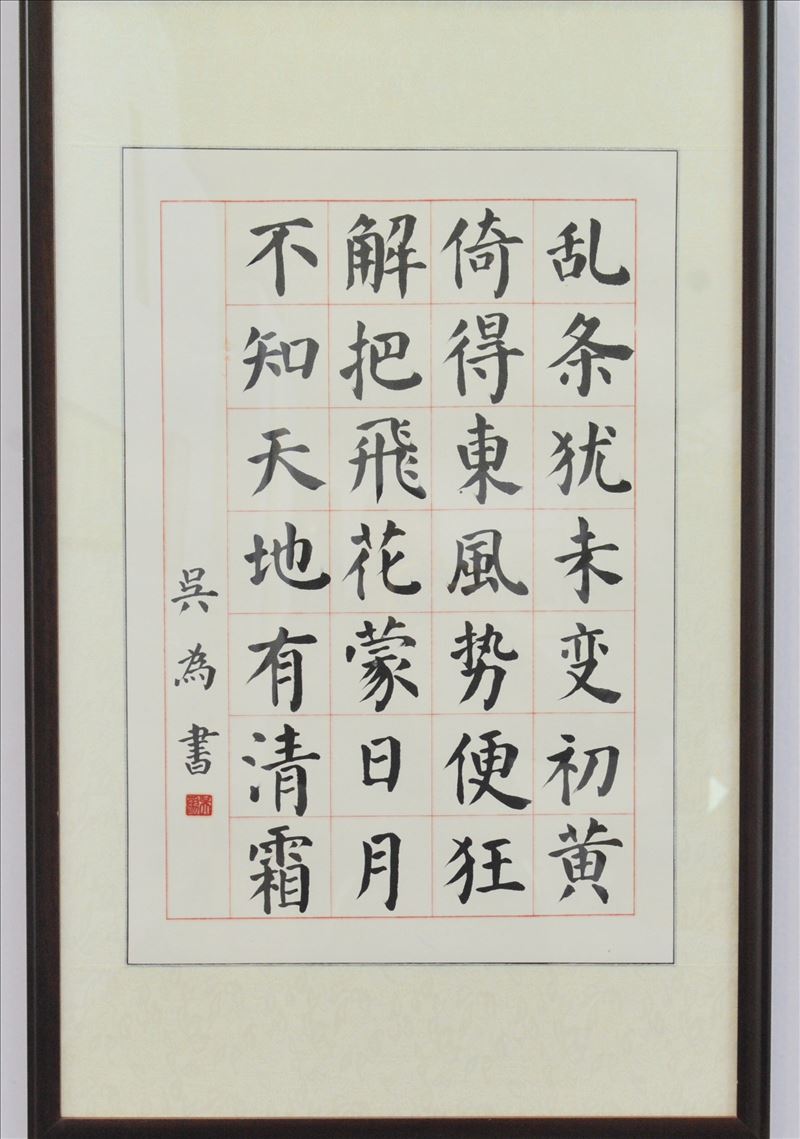 乱条犹未变初黄
倚得東風势便狂
解把飛花蒙日月
不知天地有清霜
吳為書